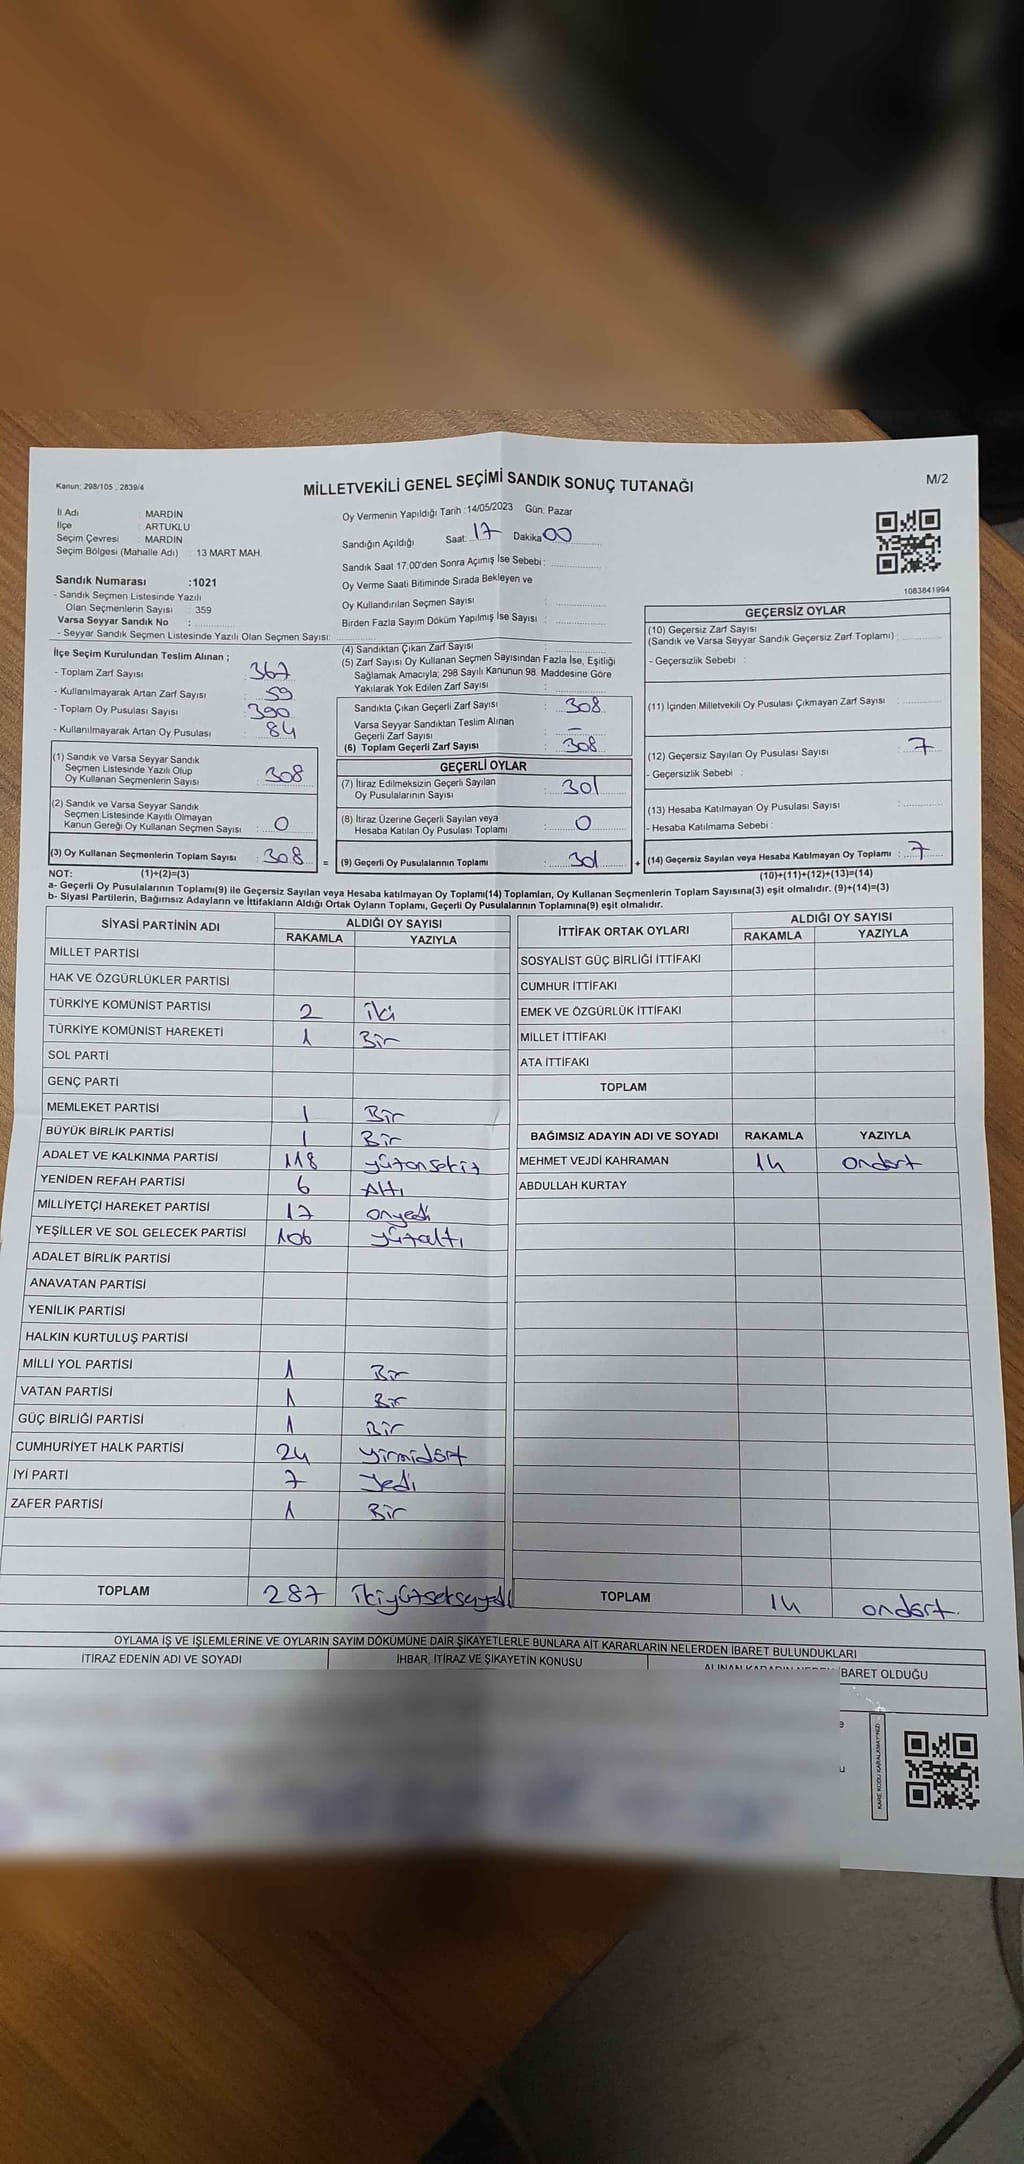 Kanun: 298/105 , 2839/4
MİLLETVEKİLİ GENEL SEÇİMİ SANDIK SONUÇ TUTANAĞI
M/2
İl Adı : MARDİN
İlçe : ARTUKLU
Seçim Çevresi : MARDİN
Seçim Bölgesi (Mahalle Adı) : 13 MART MAH.
Sandık Numarası :1021
- Sandık Seçmen Listesinde Yazılı
Olan Seçmenlerin Sayısı : 359
Varsa Seyyar Sandık No :
- Seyyar Sandık Seçmen Listesinde Yazılı Olan Seçmen Sayısı:
Oy Vermenin Yapıldığı Tarih :14/05/2023 Gün: Pazar
Sandığın Açıldığı Saat: 17 Dakika 00
Sandık Saat 17.00'den Sonra Açımış İse Sebebi :
Oy Verme Saati Bitiminde Sırada Bekleyen ve
Oy Kullandırılan Seçmen Sayısı :
Birden Fazla Sayım Döküm Yapılmış İse Sayısı :
1083841994
İlçe Seçim Kurulundan Teslim Alınan ;
- Toplam Zarf Sayısı : 367
- Kullanılmayarak Artan Zarf Sayısı : 59
- Toplam Oy Pusulası Sayısı : 390
- Kullanılmayarak Artan Oy Pusulası : 84
(1) Sandık ve Varsa Seyyar Sandık
Seçmen Listesinde Yazılı Olup
Oy Kullanan Seçmenlerin Sayısı : 308
(2) Sandık ve Varsa Seyyar Sandık
Seçmen Listesinde Kayıtlı Olmayan
Kanun Gereği Oy Kullanan Seçmen Sayısı : 0
(3) Oy Kullanan Seçmenlerin Toplam Sayısı : 308 =
(4) Sandıktan Çıkan Zarf Sayısı :
(5) Zarf Sayısı Oy Kullanan Seçmen Sayısından Fazla İse, Eşitliği
Sağlamak Amacıyla, 298 Sayılı Kanunun 98. Maddesine Göre
Yakılarak Yok Edilen Zarf Sayısı :
Sandıkta Çıkan Geçerli Zarf Sayısı : 308
Varsa Seyyar Sandıktan Teslim Alınan
Geçerli Zarf Sayısı : -
(6) Toplam Geçerli Zarf Sayısı : 308
GEÇERLİ OYLAR
(7) İtiraz Edilmeksizin Geçerli Sayılan
Oy Pusulalarının Sayısı : 301
(8) İtiraz Üzerine Geçerli Sayılan veya
Hesaba Katılan Oy Pusulası Toplamı : 0
(9) Geçerli Oy Pusulalarının Toplamı : 301 +
GEÇERSİZ OYLAR
(10) Geçersiz Zarf Sayısı
(Sandık ve Varsa Seyyar Sandık Geçersiz Zarf Toplamı) :
- Geçersizlik Sebebi :
(11) İçinden Milletvekili Oy Pusulası Çıkmayan Zarf Sayısı :
(12) Geçersiz Sayılan Oy Pusulası Sayısı : 7
- Geçersizlik Sebebi :
(13) Hesaba Katılmayan Oy Pusulası Sayısı :
- Hesaba Katılmama Sebebi :
(14) Geçersiz Sayılan veya Hesaba Katılmayan Oy Toplamı : 7
NOT: (1)+(2)=(3)
(10)+(11)+(12)+(13)=(14)
a- Geçerli Oy Pusulalarının Toplamı(9) ile Geçersiz Sayılan veya Hesaba katılmayan Oy Toplamı(14) Toplamları, Oy Kullanan Seçmenlerin Toplam Sayısına(3) eşit olmalıdır. (9)+(14)=(3)
b- Siyasi Partilerin, Bağımsız Adayların ve İttifakların Aldığı Ortak Oyların Toplamı, Geçerli Oy Pusulalarının Toplamına(9) eşit olmalıdır.
SİYASİ PARTİNİN ADI ALDIĞI OY SAYISI
RAKAMLA YAZIYLA
MİLLET PARTİSİ
HAK VE ÖZGÜRLÜKLER PARTİSİ
TÜRKİYE KOMÜNİST PARTİSİ 2 iki
TÜRKİYE KOMÜNİST HAREKETİ 1 Bir
SOL PARTİ
GENÇ PARTİ
MEMLEKET PARTİSİ 1 Bir
BÜYÜK BİRLİK PARTİSİ 1 Bir
ADALET VE KALKINMA PARTİSİ 118 yüzonsekiz
YENİDEN REFAH PARTİSİ 6 Altı
MİLLİYETÇİ HAREKET PARTİSİ 17 onyedi
YEŞİLLER VE SOL GELECEK PARTİSİ 106 yüzaltı
ADALET BİRLİK PARTİSİ
ANAVATAN PARTİSİ
YENİLİK PARTİSİ
HALKIN KURTULUŞ PARTİSİ
MİLLİ YOL PARTİSİ 1 Bir
VATAN PARTİSİ 1 Bir
GÜÇ BİRLİĞİ PARTİSİ 1 Bir
CUMHURİYET HALK PARTİSİ 24 yirmidört
İYİ PARTİ 7 yedi
ZAFER PARTİSİ 1 Bir
TOPLAM 287 ikiyüzseksenyedi
İTTİFAK ORTAK OYLARI ALDIĞI OY SAYISI
RAKAMLA YAZIYLA
SOSYALİST GÜÇ BİRLİĞİ İTTİFAKI
CUMHUR İTTİFAKI
EMEK VE ÖZGÜRLÜK İTTİFAKI
MİLLET İTTİFAKI
ATA İTTİFAKI
TOPLAM
BAĞIMSIZ ADAYIN ADI VE SOYADI RAKAMLA YAZIYLA
MEHMET VEJDİ KAHRAMAN 14 ondört
ABDULLAH KURTAY
TOPLAM 14 ondört.
OYLAMA İŞ VE İŞLEMLERİNE VE OYLARIN SAYIM DÖKÜMÜNE DAİR ŞİKAYETLERLE BUNLARA AİT KARARLARIN NELERDEN İBARET BULUNDUKLARI
İTİRAZ EDENİN ADI VE SOYADI
İHBAR, İTİRAZ VE ŞİKAYETİN KONUSU
İBARET OLDUĞU
KARE KODU KARALAMAYINIZ